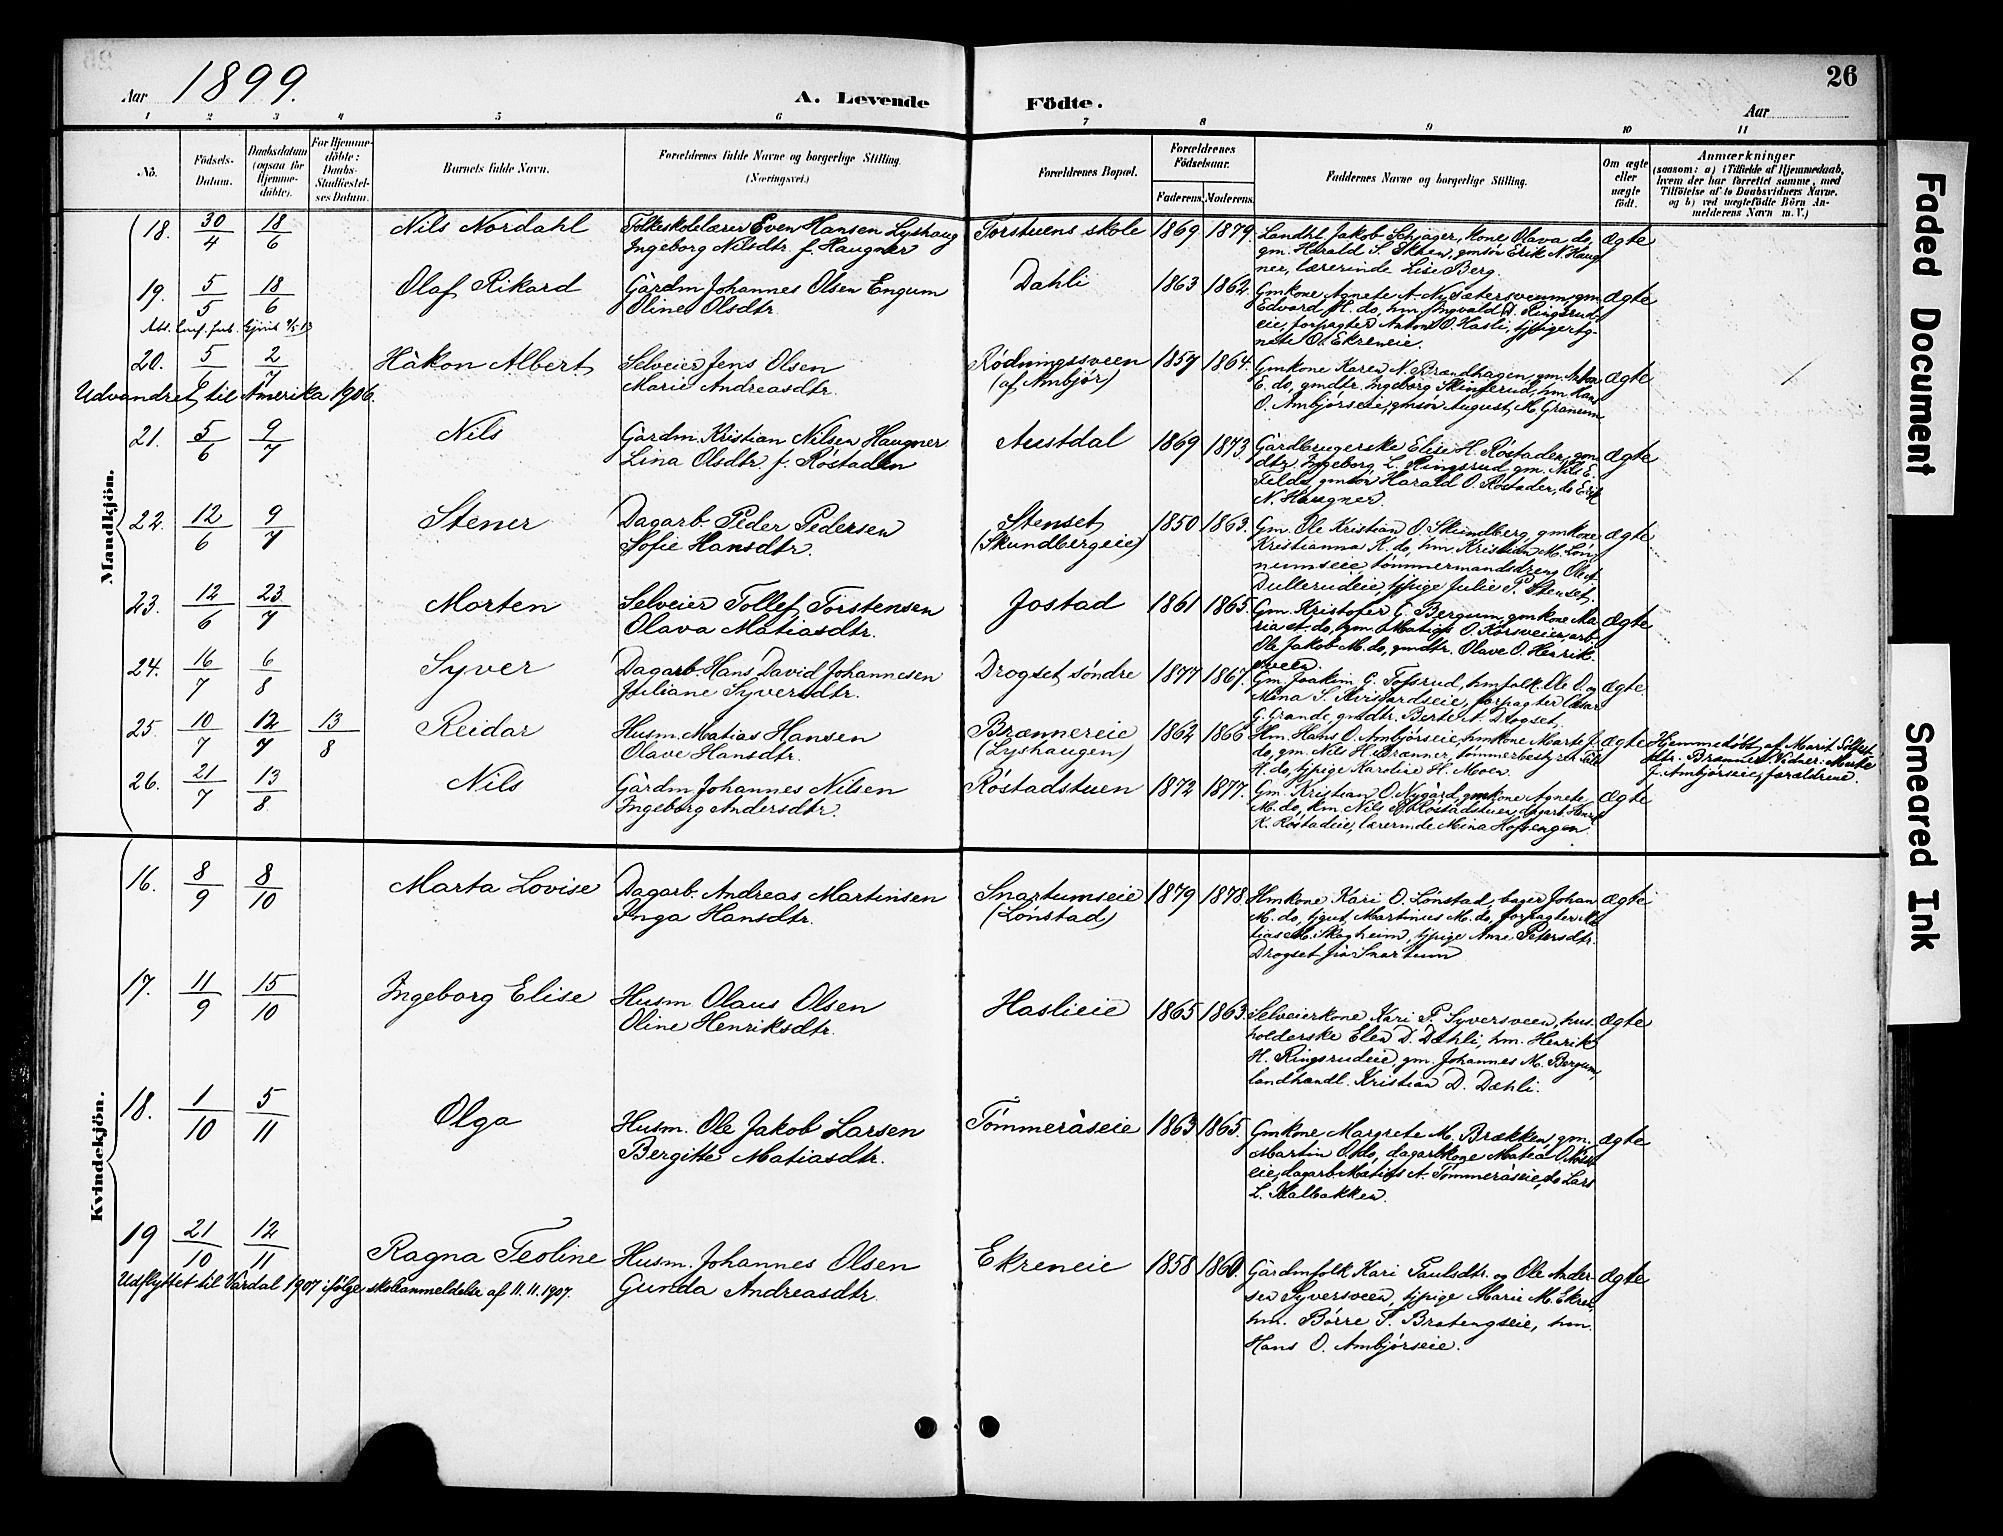 26
Aar 1899.
A. Levende Födte.
Aar
1 2 3 4 5 6 7 8 9 10 11
No.
Födsels-Datum.
Daabsdatum (ogsaa for Hjemmedöbte).
For Hjemmedöbte: Daabs-Stadfæstelses Datum.
Barnets fulde Navn.
Forældrenes fulde Navne og borgerlige Stilling. (Næringsvei.)
Forældrenes Bopæl.
Forældrenes Födselsaar.
Faderens. Moderens.
Faddernes Navne og borgerlige Stilling.
Om ægte eller uægte födt.
Anmærkninger
(saasom: a) i Tilfælde af Hjemmedaab, hvem der har forrettet samme, med Tilföielse af to Daabsvidners Navne, og b) ved uægtefödte Börn Anmelderens Navn m. V.)
Mandkjön.
18. 30/4 18/6 Nils Nordahl
Folkeskolelærer Even Hansen Lyshaug
Ingeborg Nilsdtr. f. Haugner
Torstuens skole 1869 1879.
Landhl. Jakob Schjager, kone Olava do,
gm. Harald S. Ekren, gmsøn Erik N. Haug-
ner, lærerinde Lise Berg.
Ægte
19. 5/5 18/6 Olaf Rikard
Gårdm. Johannes Olsen Engum
Oline Olsdtr.
Dahli 1863 1862.
Gmkone Agnete A. Nysætersveum, gm.
Edvard K. do, hm. Ingvald J. Ringsrud-
eie, forpagter Anton O. Hasli, tjpige Ag-
nete O. Ekreneie.
Ægte
20. 5/6 2/7 Håkon Albert
Selveier Jens Olsen
Marie Andreasdtr.
Rødningssveen
(af Ambjør)
1857 1864.
Gmkone Karen N. Brændhagen, gm. Anton
E. do, gmdtr. Ingeborg Skinnerud, hm. Hans
O. Ambjørseie, gmsøn August M. Granum
Ægte
Udvandret til Amerika 1906.
21. 5/6 9/7 Nils
Gårdm. Kristian Nilsen Haugner
Lina Olsdtr. f. Røstaden
Austdal 1869 1873.
Gårdbrugerske Elise H. Røstaden, gm-
dtr. Ingeborg L. Ringsrud, gm. Nils E.
Felde, gmsøn Harald O. Røstaden, do Erik
N. Haugner.
Ægte
22. 12/6 9/7 Stener
Dagarb. Peder Pedersen
Sofie Hansdtr.
Stenset
(Skundbergeie)
1850 1863.
Gm. Ole Kristian O. Skundberg, gmkone
Kristianna K. do, hm. Kristian M. Løn-
numseie, tømmermandsdreng Ole
Dullerudeie, tjpige Julie P. Stenset.
Ægte
23. 12/6 23/7 Morten
Selveier Tollef Torstensen
Olava Matiasdtr.
Jostad 1861 1865.
Gm. Kristofer C. Bergum, gmkone Ma-
ria do, gm. Matias O. Korsveien, arb.
Ole Jakob M. do, gmdtr. Olave O. Henrik-
sveen.
Ægte
24. 16/7 6/8 Syver
Dagarb. Hans David Johannesen
Juliane Syversdtr.
Drogset søndre 1877 1867.
Gm. Joakim G. Tofsrud, hmfolk Ole O. og
Mina S., forpagter
G. Grande, gmdtr. Berte A. Drogset.
Ægte
25. 10/7 12/7 13/8 Reidar
Husm. Matias Hansen
Olave Hansdtr.
Brænnereie
(Lyshaugen)
1862 1866
Hm. Hans O. Ambjørseie, hmkone Marte J.
do, gm. Nils H. Brænner, tømmerbestyrer
H. do, tjpige Karoline H. Moen.
Ægte
Hjemmedøbt af Marit
dtr. Brænner. Vidner: Marte
J. Ambjørseie, forældrene.
26. 21/7 13/8 Nils
Gårdm. Johannes Nilsen
Ingeborg Andersdtr.
Røstadstuen 1872 1877.
Gm. Kristian O. Nygård, gmkone Agnete
M. do, hm. Nils Røstadstuen, dagarb. Henrik
K. Røstadeie, lærerinde Mina Hofsengen.
Ægte
Kvindekjön.
16. 8/9 8/10 Marta Lovise
Dagarb. Andreas Martinsen
Inga Hansdtr.
Snartumseie
(Lønstad)
1879 1878.
Hmkone Kari O. Lønstad, bager Johan
M. do, tjgut Martinius M. do, forpagter Ma-
tias M. Skogheim, tjpige Anne Petersdtr.
Drogset fra Snartum
Ægte
17. 11/9 15/10 Ingeborg Elise
Husm. Olaus Olsen
Oline Henriksdtr.
Haslieie 1865 1863.
Selveierkone Kari P. Syversveen, hus-
holderske Elen D. Dæhli, hm. Henrik
H. Ringsrudeie, gm. Johannes M. Bergum,
landhandl. Kristian D. Dæhli.
Ægte
18. 1/10 5/11 Olga
Husm. Ole Jakob Larsen
Bergitte Matiasdtr.
Tømmeråseie 1863 1865.
Gmkone Margrete M. Brækken, gm.
Martin O. do, dagarbkone Matea O.
eie, dagarb. Matias A. Tømmeråseie, do Lars
L. Kalbakken.
Ægte
19 21/10 12/11 Ragna Teoline
Husm. Johannes Olsen
Gunda Andreasdtr.
Ekreneie 1858 1860.
Gårdmfolk Kari Paulsdtr. og Ole Ander-
sen Syversveen, tjpige Marie M. Ekren,
hm. Børre T. Bratengseie, hm.
Hans O. Ambjørseie.
Ægte
Udflyttet til Vardal 1907 ifølge skoleanmeldelse af 11.11.1907.
Faded Document
Smeared Ink